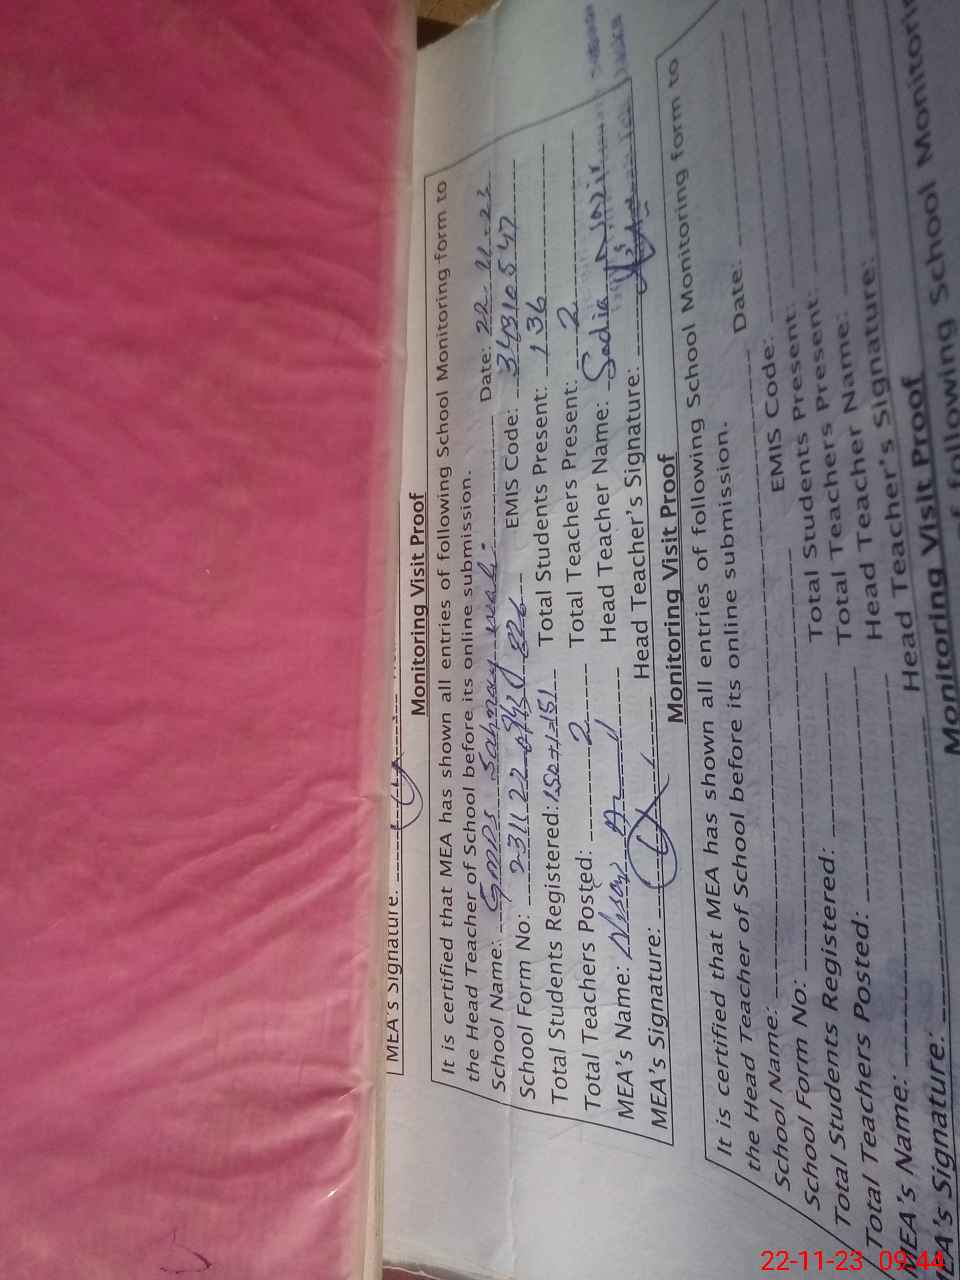 MEA's Signature:
Monitoring Visit Proof
It is certified that MEA has shown all entries of following School Monitoring form to
the Head Teacher of School before its online submission.
School Name: GMPS Date: 22.11.23
School Form No: EMIS Code: 34310547
Total Students Registered: 150+1=151 Total Students Present: 136
Total Teachers Posted: 2 Total Teachers Present: 2
MEA's Name: Head Teacher Name: Sadia Nazir
MEA's Signature: Head Teacher's Signature:
Monitoring Visit Proof
It is certified that MEA has shown all entries of following School Monitoring form to
the Head Teacher of School before its online submission.
School Name: Date:
School Form No: EMIS Code:
Total Students Registered: Total Students Present:
Total Teachers Posted: Total Teachers Present:
MEA's Name: Head Teacher Name:
MEA's Signature: Head Teacher's Signature:
Monitoring Visit Proof
of following School Monitoring
22-11-23 09:44